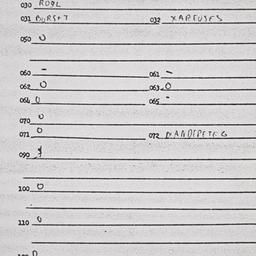 030 ROQL
031 BURSAT 032 XAREUSES
050 0
060 - 061 -
062 0 063 0
064 0 065 -
070 0
071 0 072 MANDEPETEG
090 9
100 0
110 0